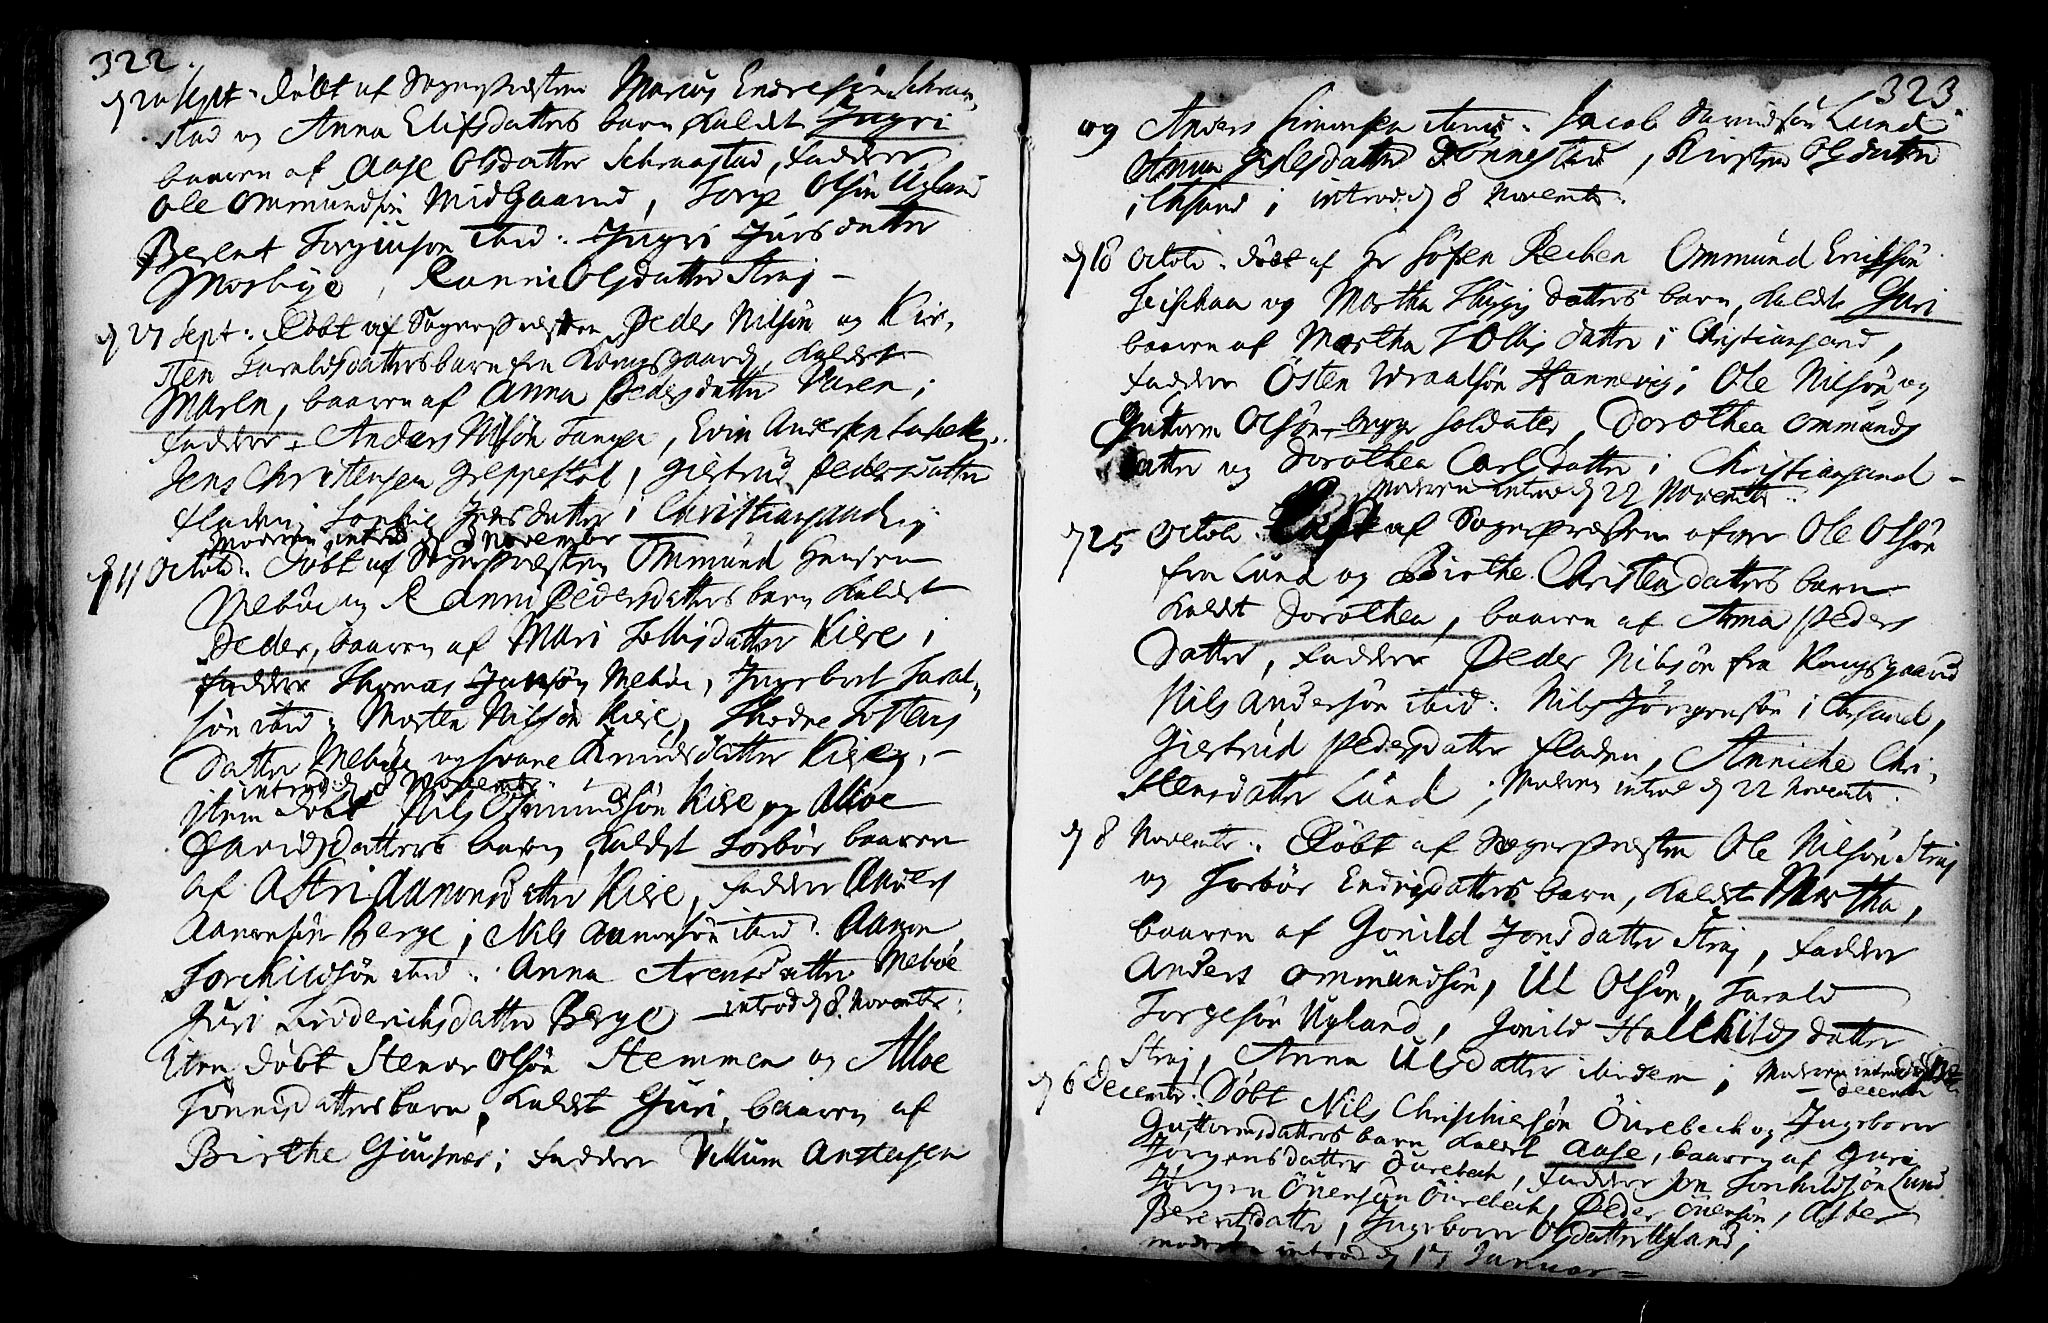 322.
d 20 Sept. Döbt af Sognepræsten Marcus Endresön Schraa,
stad og Anna Elifsdatters barn kaldet Ingri
baaren af Aase Olsdatter Schraastad, Fadder
Ole Ommundsön Midgaard, Torge Olsön Ugland
Berent Torgiusön ibid: Ingri Jursdatter
Mosbye, Ranni Olsdatter Straj –
d 27 Sept: Döbt af Sognepræsten Peder Nilsön og Kir,
sten Taraldsdatters barn fra Kongsgaard, kaldet
Maren, baaren af Anna Pedersdatter
Fadder: Anders Nilsön Tangen, Even Andersen
Jens Christensen Greppestöl, Giertrud Pedersdatter
Fladen, Sophie Jensdatter i Christiansand,
Moderen introd d 8 November
d 11 Octobr. Döbt af Sognepræsten Ommund Hansen
Meböe og Ranni Pedersdatters barn kaldet
Peder, baaren af Mari Tollisdatter Kiere;
Fadder Thomas Jansön Meböe, Ingebort Taral,
sön ibid: Morten Nilsön Kiere, Thodne Tostens
datter Meböe og Svane Amundsdatter Kiere, –
introd: d 8 Novembr
item Döbt Nils Omundsön Kiere og Alloe
Davidsdatters barn kaldet Torbör baaren
af Astri Aanonsdatter Kiere, Fadder Anders
Aanonsön Berge, Nils Aanonsön ibid: Aanon
Torchildsön ibid: Anna Arensdatter Meböe
Guri Friderichsdatter Berge – introd d 8 Novembr:
Item Döbt Stenar Olsön Stemmen og Alloe
Tönnisdatters barn, kaldet Guri, baaren af
Birthe Giusnæs; Fadder Villum Anstensen
323.
og Anders Simonsen ibid: Jacob Davidsön Lund
Gislesdatter Dönnestad, Kirsten Olsdatter
i Chsand; introd: d 8 Novembr:
d 18 Octobr. Döbt af Hr Söfren Ommund Erichsön
og Martha datters barn, kaldet Guri
baaren af Martha Tollis datter i Christiansand,
Fadder Östen Wraalsön Hannevig, Ole Nilsön og
Guttorm Olsön, begge soldater, Dorothea Ommunds
datter og Dorothea Carlsdatter i Christiansand –
Moderen introd d 22 Novembr.
d 25 Octobr. af Sognepræsten Ole Olsön
fra Lund og Birthe Christensdatters barn
kaldet Dorothea, baaren af Anna Peders
datter, Fadder Peder Nilsön fra Kongsgaard
Nils Andersön ibid: Nils Jörgensön i Chsand,
Giertrud Pedersdatter Fladen, Anniche Chri,
stensdatter Lund; Moderen introd d 22 Novembr.
d 8 Novembr. Döbt af Sognepræsten Ole Nilsön Straj
og Torbör Endresdatters barn, kaldet Martha,
baaren af Gonild Jonsdatter Straj, Fadder
Anders Ommundsön, Ul Olsön, Tarald
Torgesön Ugland, Gonild Hallchilds datter
Straj, Anna Ulsdatter ibidem; Moderen introd
decembr
d 6 Decembr. Döbt Nils Christensön Öurebech og Ingeborr
Guttormsdatters barn kaldet Aase, baaren af Guri
Jörgensdatter Öurebech, Fadder Jon Torchildsön Lund
Jörgen Öuensön Öurebech, Peder Öuensön, Asber
Berentsdatter, Ingeborr Olsdatter Ugland;
moderen introd d 17 Januar =